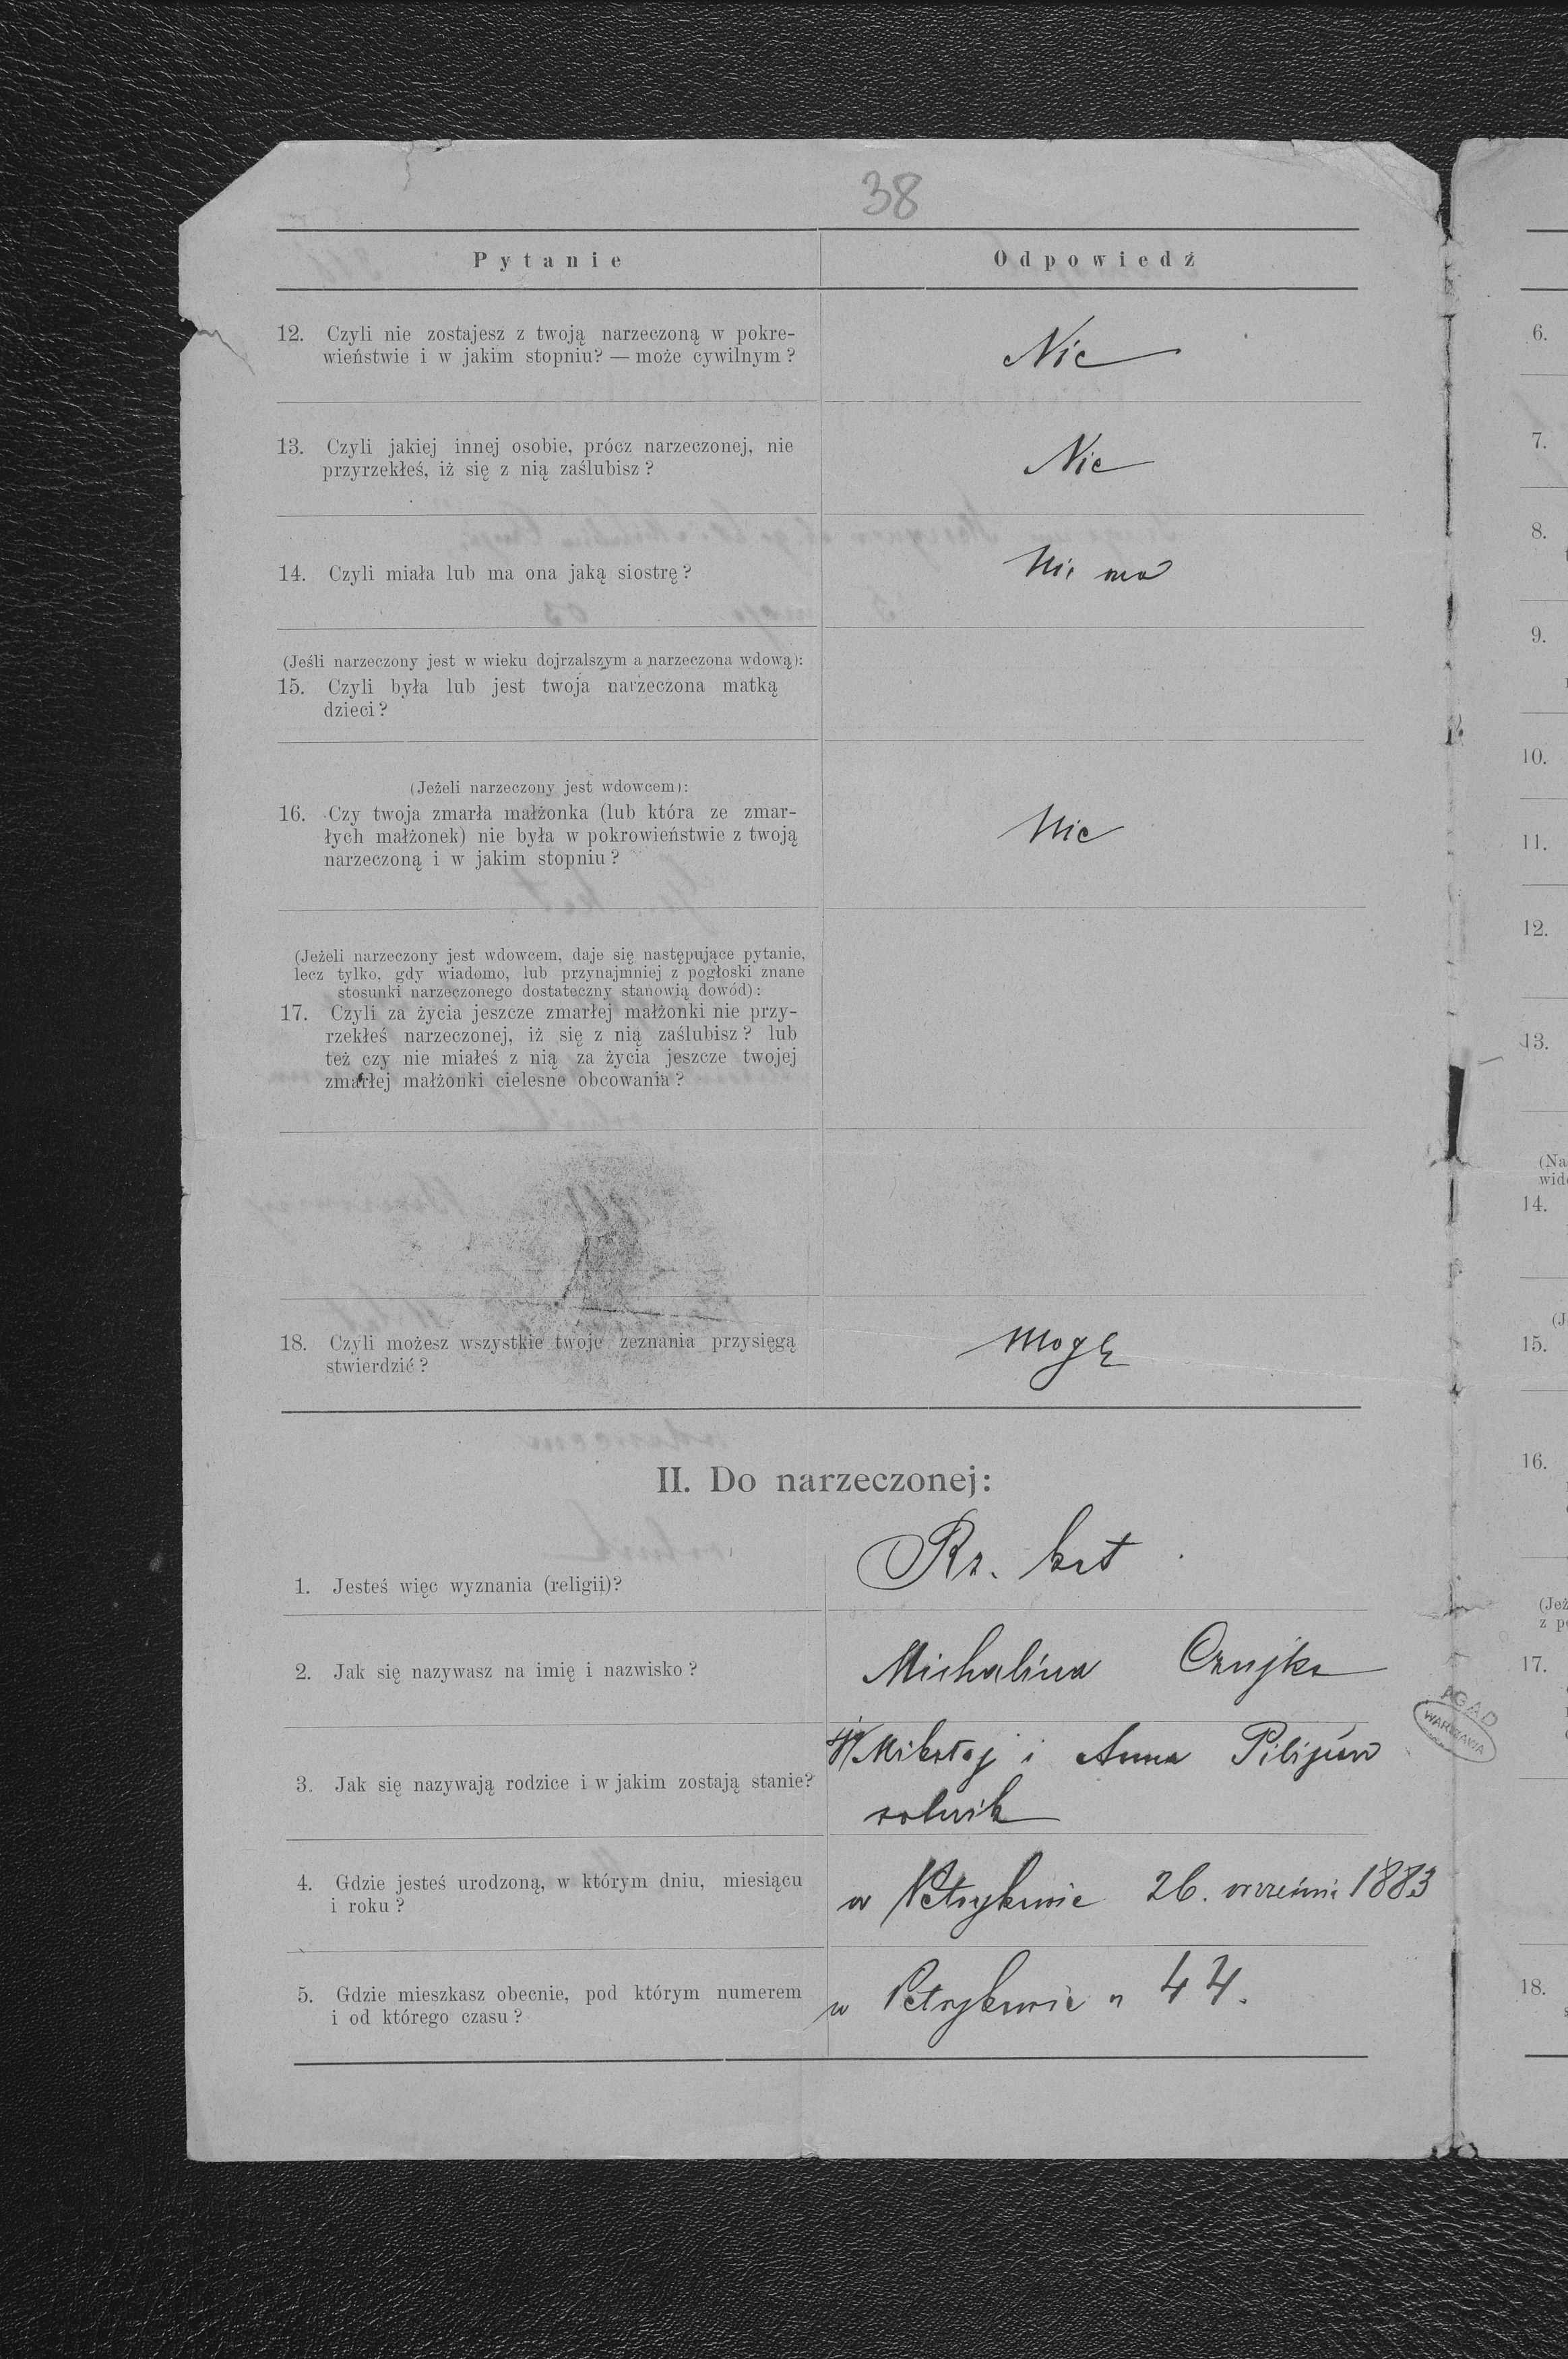 38
Pytanie Odpowiedź
12. Czyli nie zostajesz z twoją narzeczoną w pokre-
wieństwie i w jakim stopniu? — może cywilnym?
Nie
13. Czyli jakiej innej osobie, prócz narzeczonej, nie
przyrzekłeś, iż się z nią zaślubisz?
Nie
14. Czyli miała lub ma ona jaką siostrę?
Nie ma
(Jeśli narzeczony jest w wieku dojrzalszym a narzeczona wdową):
15. Czyli była lub jest twoja narzeczona matką
dzieci?
(Jeżeli narzeczony jest wdowcem):
16. Czy twoja zmarła małżonka (lub która ze zmar-
łych małżonek) nie była w pokrowieństwie z twoją
narzeczoną i w jakim stopniu?
Nie
(Jeżeli narzeczony jest wdowcem, daje się następujące pytanie,
lecz tylko, gdy wiadomo, lub przynajmniej z pogłoski znane
stosunki narzeczonego dostateczny stanowią dowód):
17. Czyli za życia jeszcze zmarłej małżonki nie przy-
rzekłeś narzeczonej, iż się z nią zaślubisz? lub
też czy nie miałeś z nią za życia jeszcze twojej
zmarłej małżonki cielesne obcowania?
18. Czyli możesz wszystkie twoje zeznania przysięgą
stwierdzić?
Mogę
II. Do narzeczonej:
1. Jesteś więc wyznania (religii)?
Rz. kat
2. Jak się nazywasz na imię i nazwisko?
Michalina Czujka
3. Jak się nazywają rodzice i w jakim zostają stanie?
Mikołaj i Anna Pilipiów
rolnik
4. Gdzie jesteś urodzoną, w którym dniu, miesiącu
i roku?
w Petrykowie 26. wrześni 1883
5. Gdzie mieszkasz obecnie, pod którym numerem
i od którego czasu?
w Petrykowie n 44.
AGAD
WARSZAWA
6.
7.
8.
9.
10.
11.
12.
13.
(Na
wid
14.
(J
15.
16.
(Jeż
z p
17.
18.